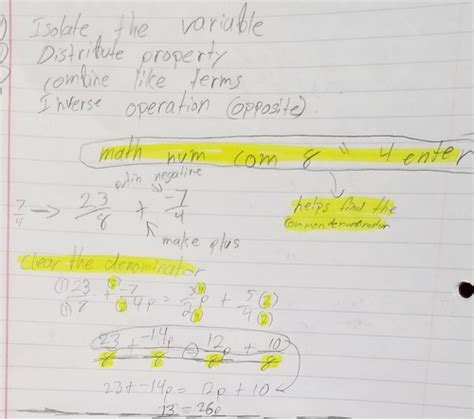 Isolate the variable
Distribute property
combine like terms
Inverse operation (opposite)
math num com 8 " 4 enter
negative
7/4 → 23/8 + -7/4
make plus
helps find the
common denominator
clear the denominator
(1)23/(1)8 + -7(2)/(2)4p = 3(4)/2(4)p + 5(2)/4(2)
23/8 + -14p/8 = 12p/8 + 10/8
23 + -14p = 12p + 10
13 = 26p